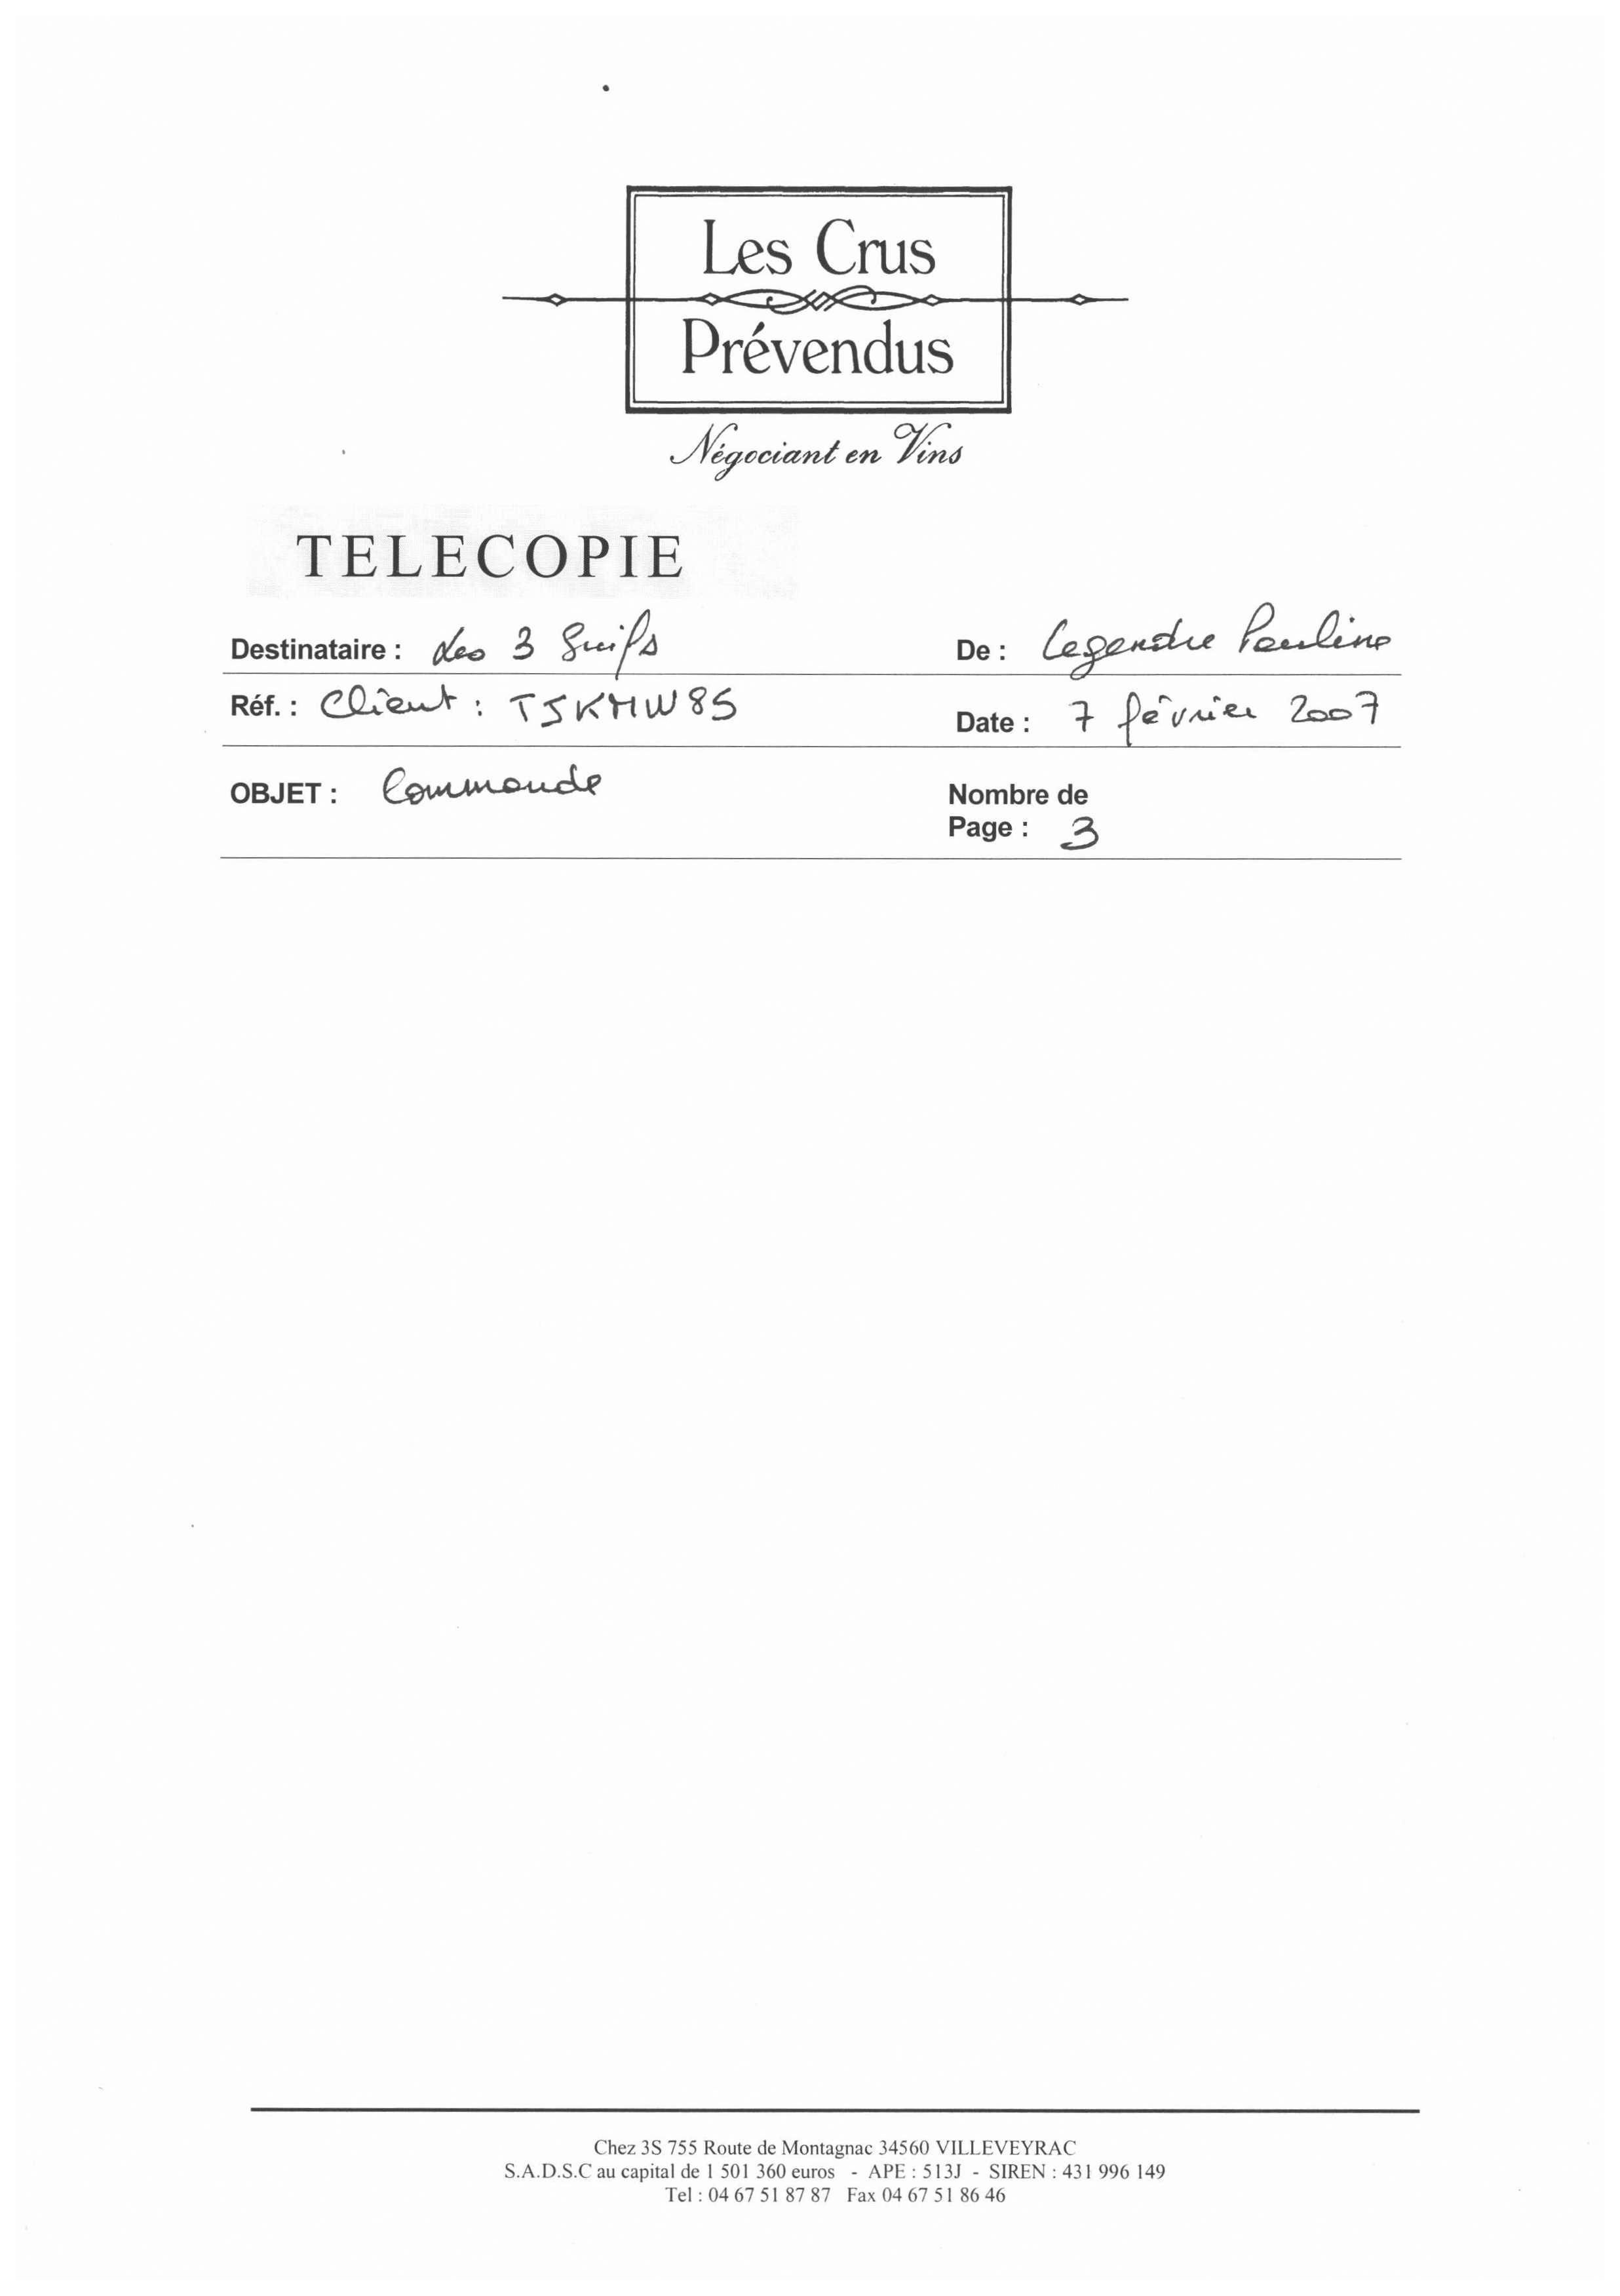 Les Crus
Prévendus
Négociant en Vins
TELECOPIE
Destinataire : Les 3 Suifs
De : Legendre Pauline
Réf. : Client : TSKMW85
Date : 7 février 2007
OBJET : Commande
Nombre de
Page : 3
Chez 3S 755 Route de Montagnac 34560 VILLEVEYRAC
S.A.D.S.C au capital de 1 501 360 euros - APE : 513J - SIREN : 431 996 149
Tel : 04 67 51 87 87 Fax 04 67 51 86 46